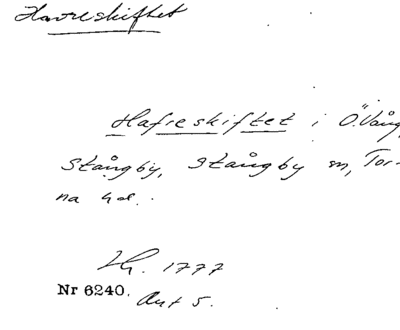 Havreskiftet
Hafreskiftet i Ö.Vång
Stångby, Stångby sn, Tor-
na hd.
Lh. 1777
Nr 6240.
Akt 5.